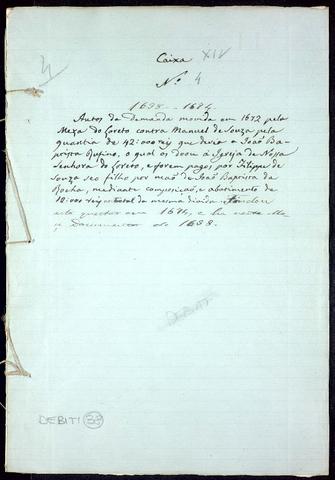 4
Caixa XIV
Nº 4
1688 - 1694.
Autos da demanda movida em 1672 pela
Meza do Loreto contra Manuel de Souza pela
quantia de 42:000 reis que devia a João Ba-
ptista Rufino, o qual os doou à Igreja de Nossa
Senhora do Loreto, e forem pagos por Filippe de
Souza seo filho por mão de João Baptista da
Rocha, mediante composição, e abatimento de
10:000 reis total da mesma divida. Findou
esta questão em 1674, e ha neste Ma
o Documentos de 1688.
DEBITI
DEBITI 33